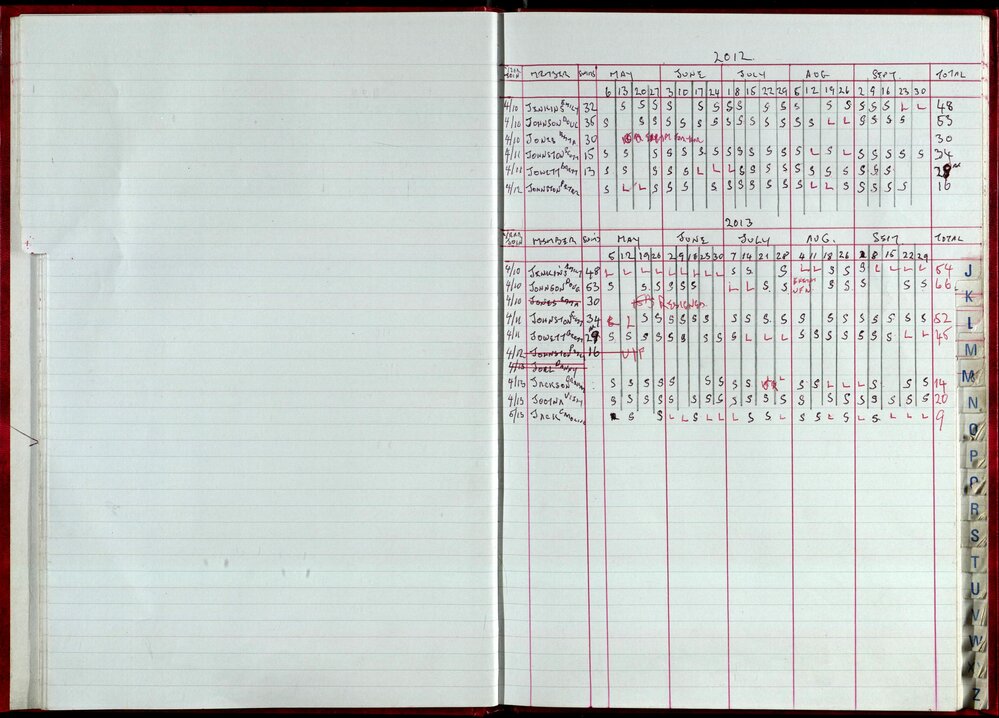 2012
YEAR JOIN MEMBER SWIMS MAY JUNE JULY AUG SEPT. TOTAL
6 13 20 27 3 10 17 24 1 8 15 22 29 5 12 19 26 2 9 16 23 30
4/10 JENKINS EMILY 32 S S S S S S S S S S S S S S S L L 48
4/10 JOHNSON DOUG 36 S S S S S S S S S S S S S S L L S S S S 53
4/10 JONES 30 30
4/11 JOHNSTON 15 S S S S S S S S S S S S S L S L S S S S S 34
4/11 JOWETT 13 S S S S S L L L S S S S S S S S S S S
4/12 JOHNSTON PETER S L L S S S S S S S S S S L L S S S S S 16
2013
YEAR JOIN MEMBER SWIMS MAY JUNE JULY AUG. SEPT TOTAL
5 12 19 26 2 9 16 23 30 7 14 21 28 4 11 18 26 8 15 22 29
4/10 JENKINS EMILY 48 L L L L L L L L L S S S L L S S S L L L L 54
4/10 JOHNSON DOUG 53 S S S S S S L L S S S S S S S 66
4/10 JONES 30 RESIGNED
4/11 JOHNSTON 34 L S S S S S S S S S S S S S S S S S S S 52
4/11 JOWETT S S S S S S S S S S L L L S S S S S S S L L 45
4/12 JOHNSTON 16
4/13 JOEL DANNY
4/13 JACKSON S S S S S S S S S S L S S L L L S S S 14
4/13 JOGINA S S S S S S S S S S S S S S S S S S S S S 20
5/13 JACK S S L L S L L L S S L S S L S L S L L L 9
J
K
L
M
N
O
P
R
S
T
U
V
W
Z